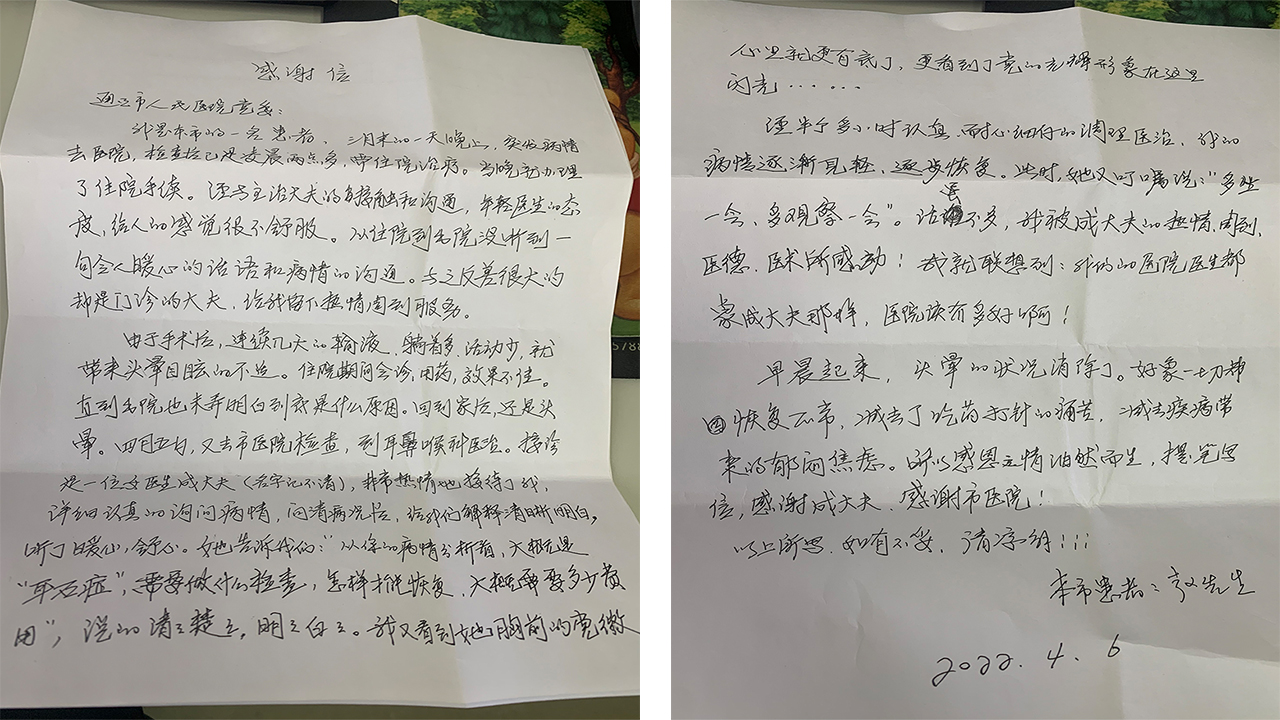 感谢信
通辽市人民医院党委：
我是本市的一定患者，三月末的一天晚上，突发病情
去医院，检查拉已是凌晨两点多，需住院治疗。当晚就办理
了住院手续。还与主治大夫的接触和沟通，年轻医生的态
度，给人的感觉很不舒服。从住院到出院没听到一
句令人暖心的话语和病情的沟通。与之反差很大的
却是门诊的大夫，给我留下热情周到服务。
由于手术后，连续几天的输液，躺着多，活动少，就
带来头晕目眩的不适。住院期间会诊，用药，效果不佳。
直到出院也未弄明白到底是什么原因。回到家后，还是头
晕。四月五日，又去市医院检查，到耳鼻喉科医治。接诊
是一位女医生成大夫（名字记不清），非常热情地接待了我，
详细认真的询问病情，问清病况后，给我们解释清晰明白，
听了暖心，舒心。她告诉我的：“从你的病情分析看，大概是
“耳石症”，需要做什么检查，怎样才能恢复，大概需要多少费
用”，说的清清楚楚，明明白白。我又看到她胸前的党徽
心里就更有底了，更看到了党的光辉形象在这里
闪光······
经半个多小时认真、耐心细仔的调理医治，我的
病情逐渐见轻，逐步恢复。此时，她又叮嘱说：“多坐
一会，多观察一会”。话虽不多，我被成大夫的热情、周到、
医德、医术所感动！我就联想到：我们的医院医生都
象成大夫那样，医院该有多好啊！
早晨起来，头晕的状况消除了。好象一切都
恢复正常，减去了吃药打针的痛苦，减去疾病带
来的郁闷焦虑。所以感恩之情油然而生，提笔写
信，感谢成大夫，感谢市医院！
以上所写，如有不妥，请谅解！！！
本市患者：赵先生
2022.4.6